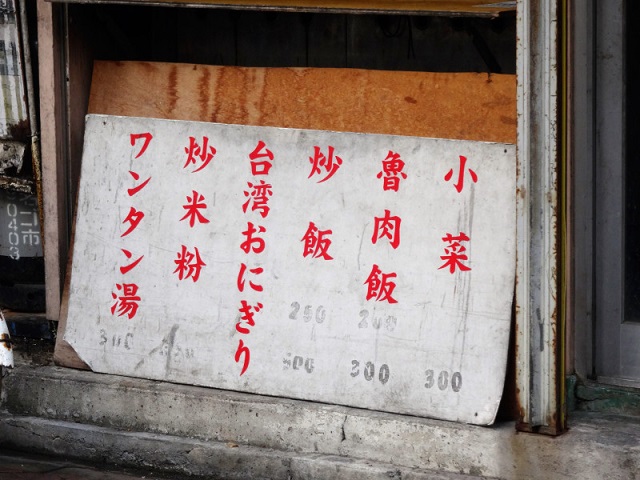 小菜
魯肉飯
炒飯
台湾おにぎり
炒米粉
ワンタン湯
300
300
300
市
0403